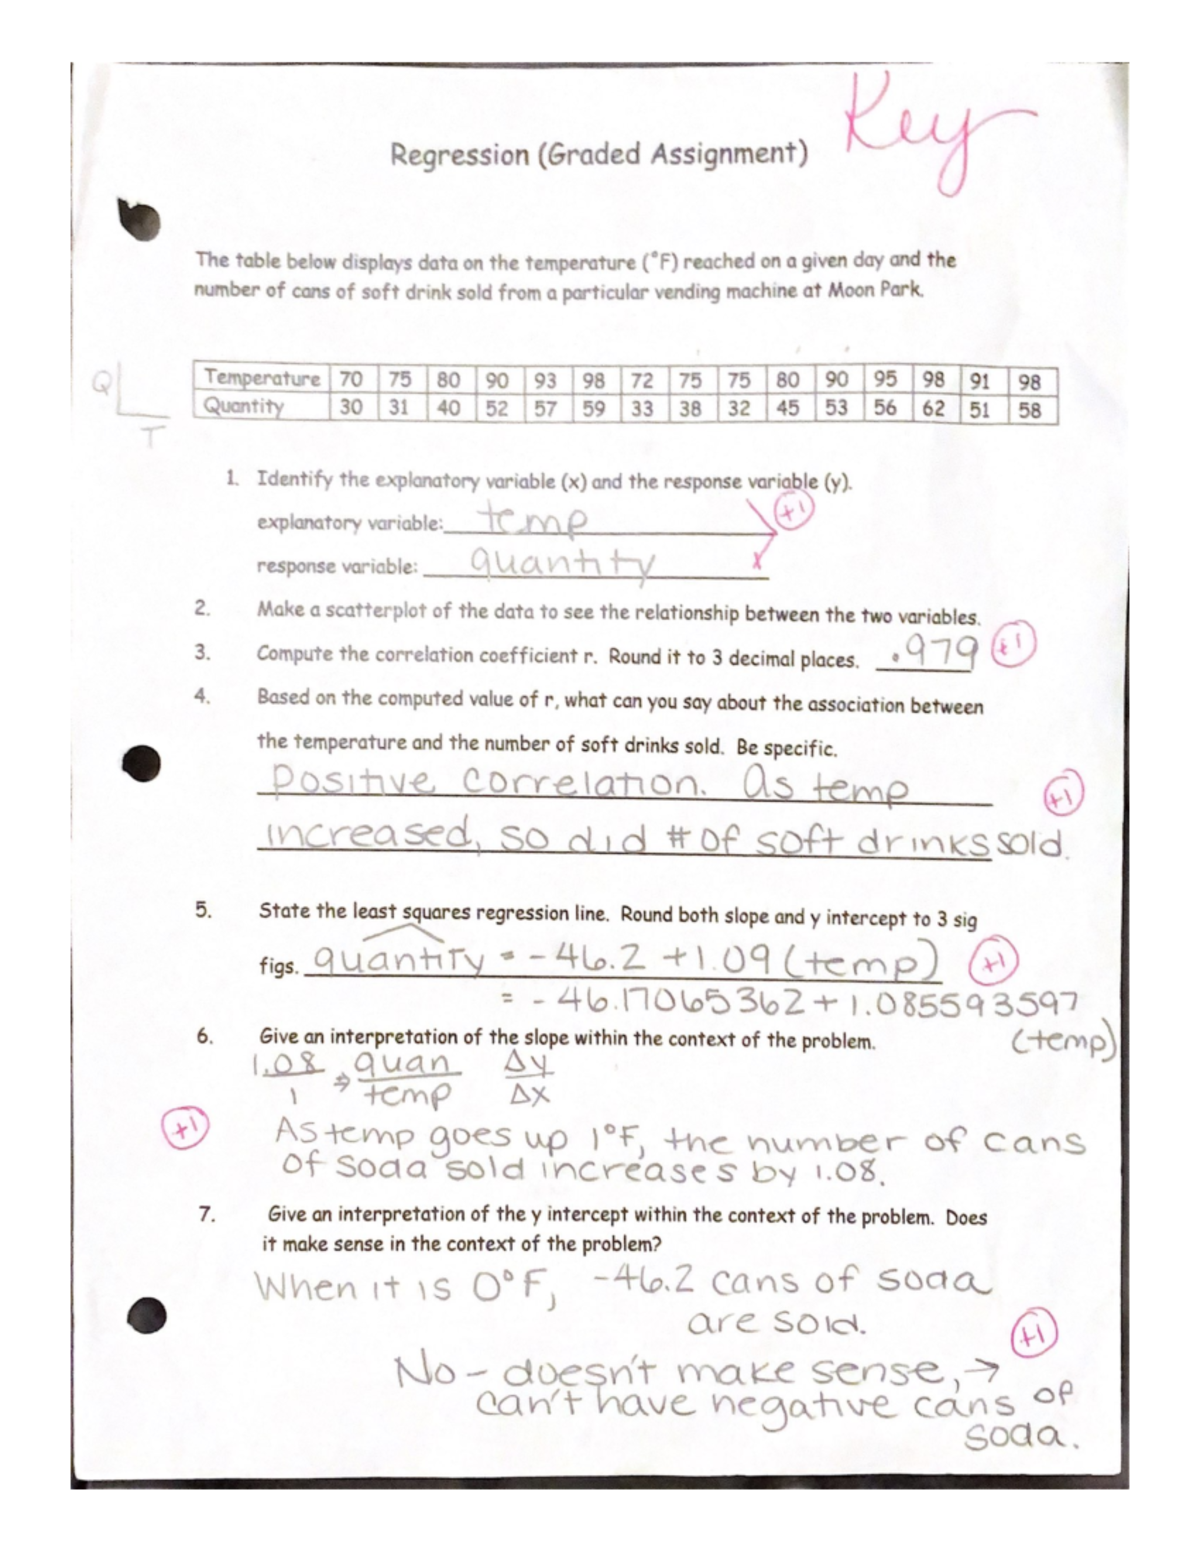 Key
Regression (Graded Assignment)
The table below displays data on the temperature (°F) reached on a given day and the
number of cans of soft drink sold from a particular vending machine at Moon Park.
Q
T
Temperature 70 75 80 90 93 98 72 75 75 80 90 95 98 91 98
Quantity 30 31 40 52 57 59 33 38 32 45 53 56 62 51 58
1. Identify the explanatory variable (x) and the response variable (y).
explanatory variable: temp +1
response variable: quantity x
2. Make a scatterplot of the data to see the relationship between the two variables.
3. Compute the correlation coefficient r. Round it to 3 decimal places. .979 +1
4. Based on the computed value of r, what can you say about the association between
the temperature and the number of soft drinks sold. Be specific.
Positive correlation. As temp +1
increased, so did # of soft drinks sold.
5. State the least squares regression line. Round both slope and y intercept to 3 sig
figs. quantity = -46.2 +1.09 (temp) +1
= -46.17065362 + 1.085593597
(temp)
6. Give an interpretation of the slope within the context of the problem.
1.08 ⇒ quan Δy
1 temp Δx
+1
As temp goes up 1°F, the number of cans
of soda sold increases by 1.08.
7. Give an interpretation of the y intercept within the context of the problem. Does
it make sense in the context of the problem?
When it is 0°F, -46.2 cans of soda
are sold.
+1
No - doesn't make sense, →
can't have negative cans of
soda.